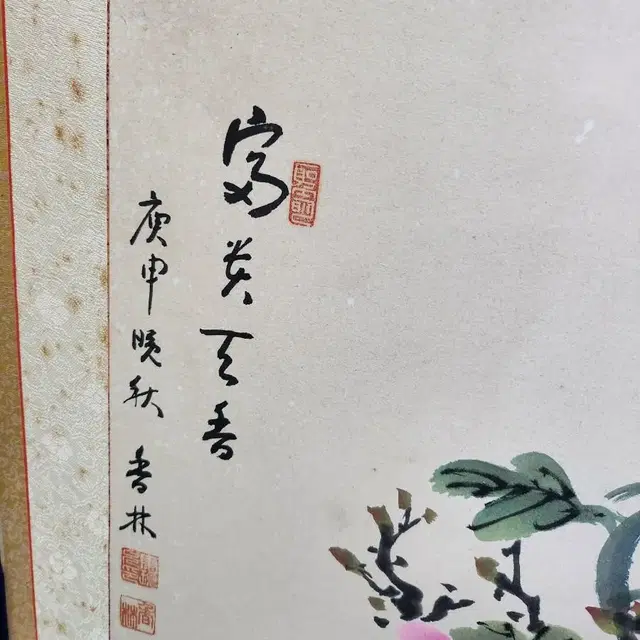 富貴天香
庚申晩秋 香林